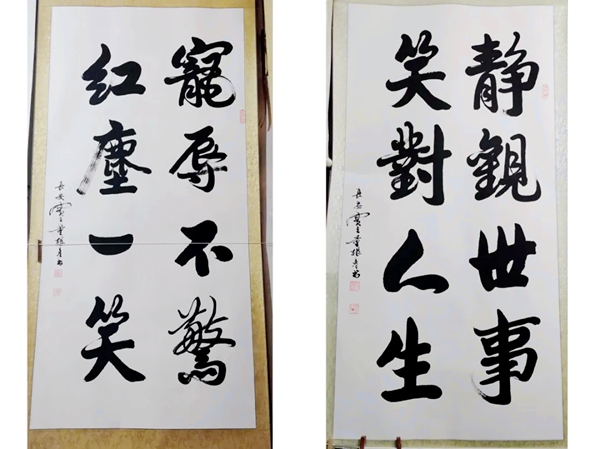 寵辱不驚
红塵一笑
静觀世事
笑對人生